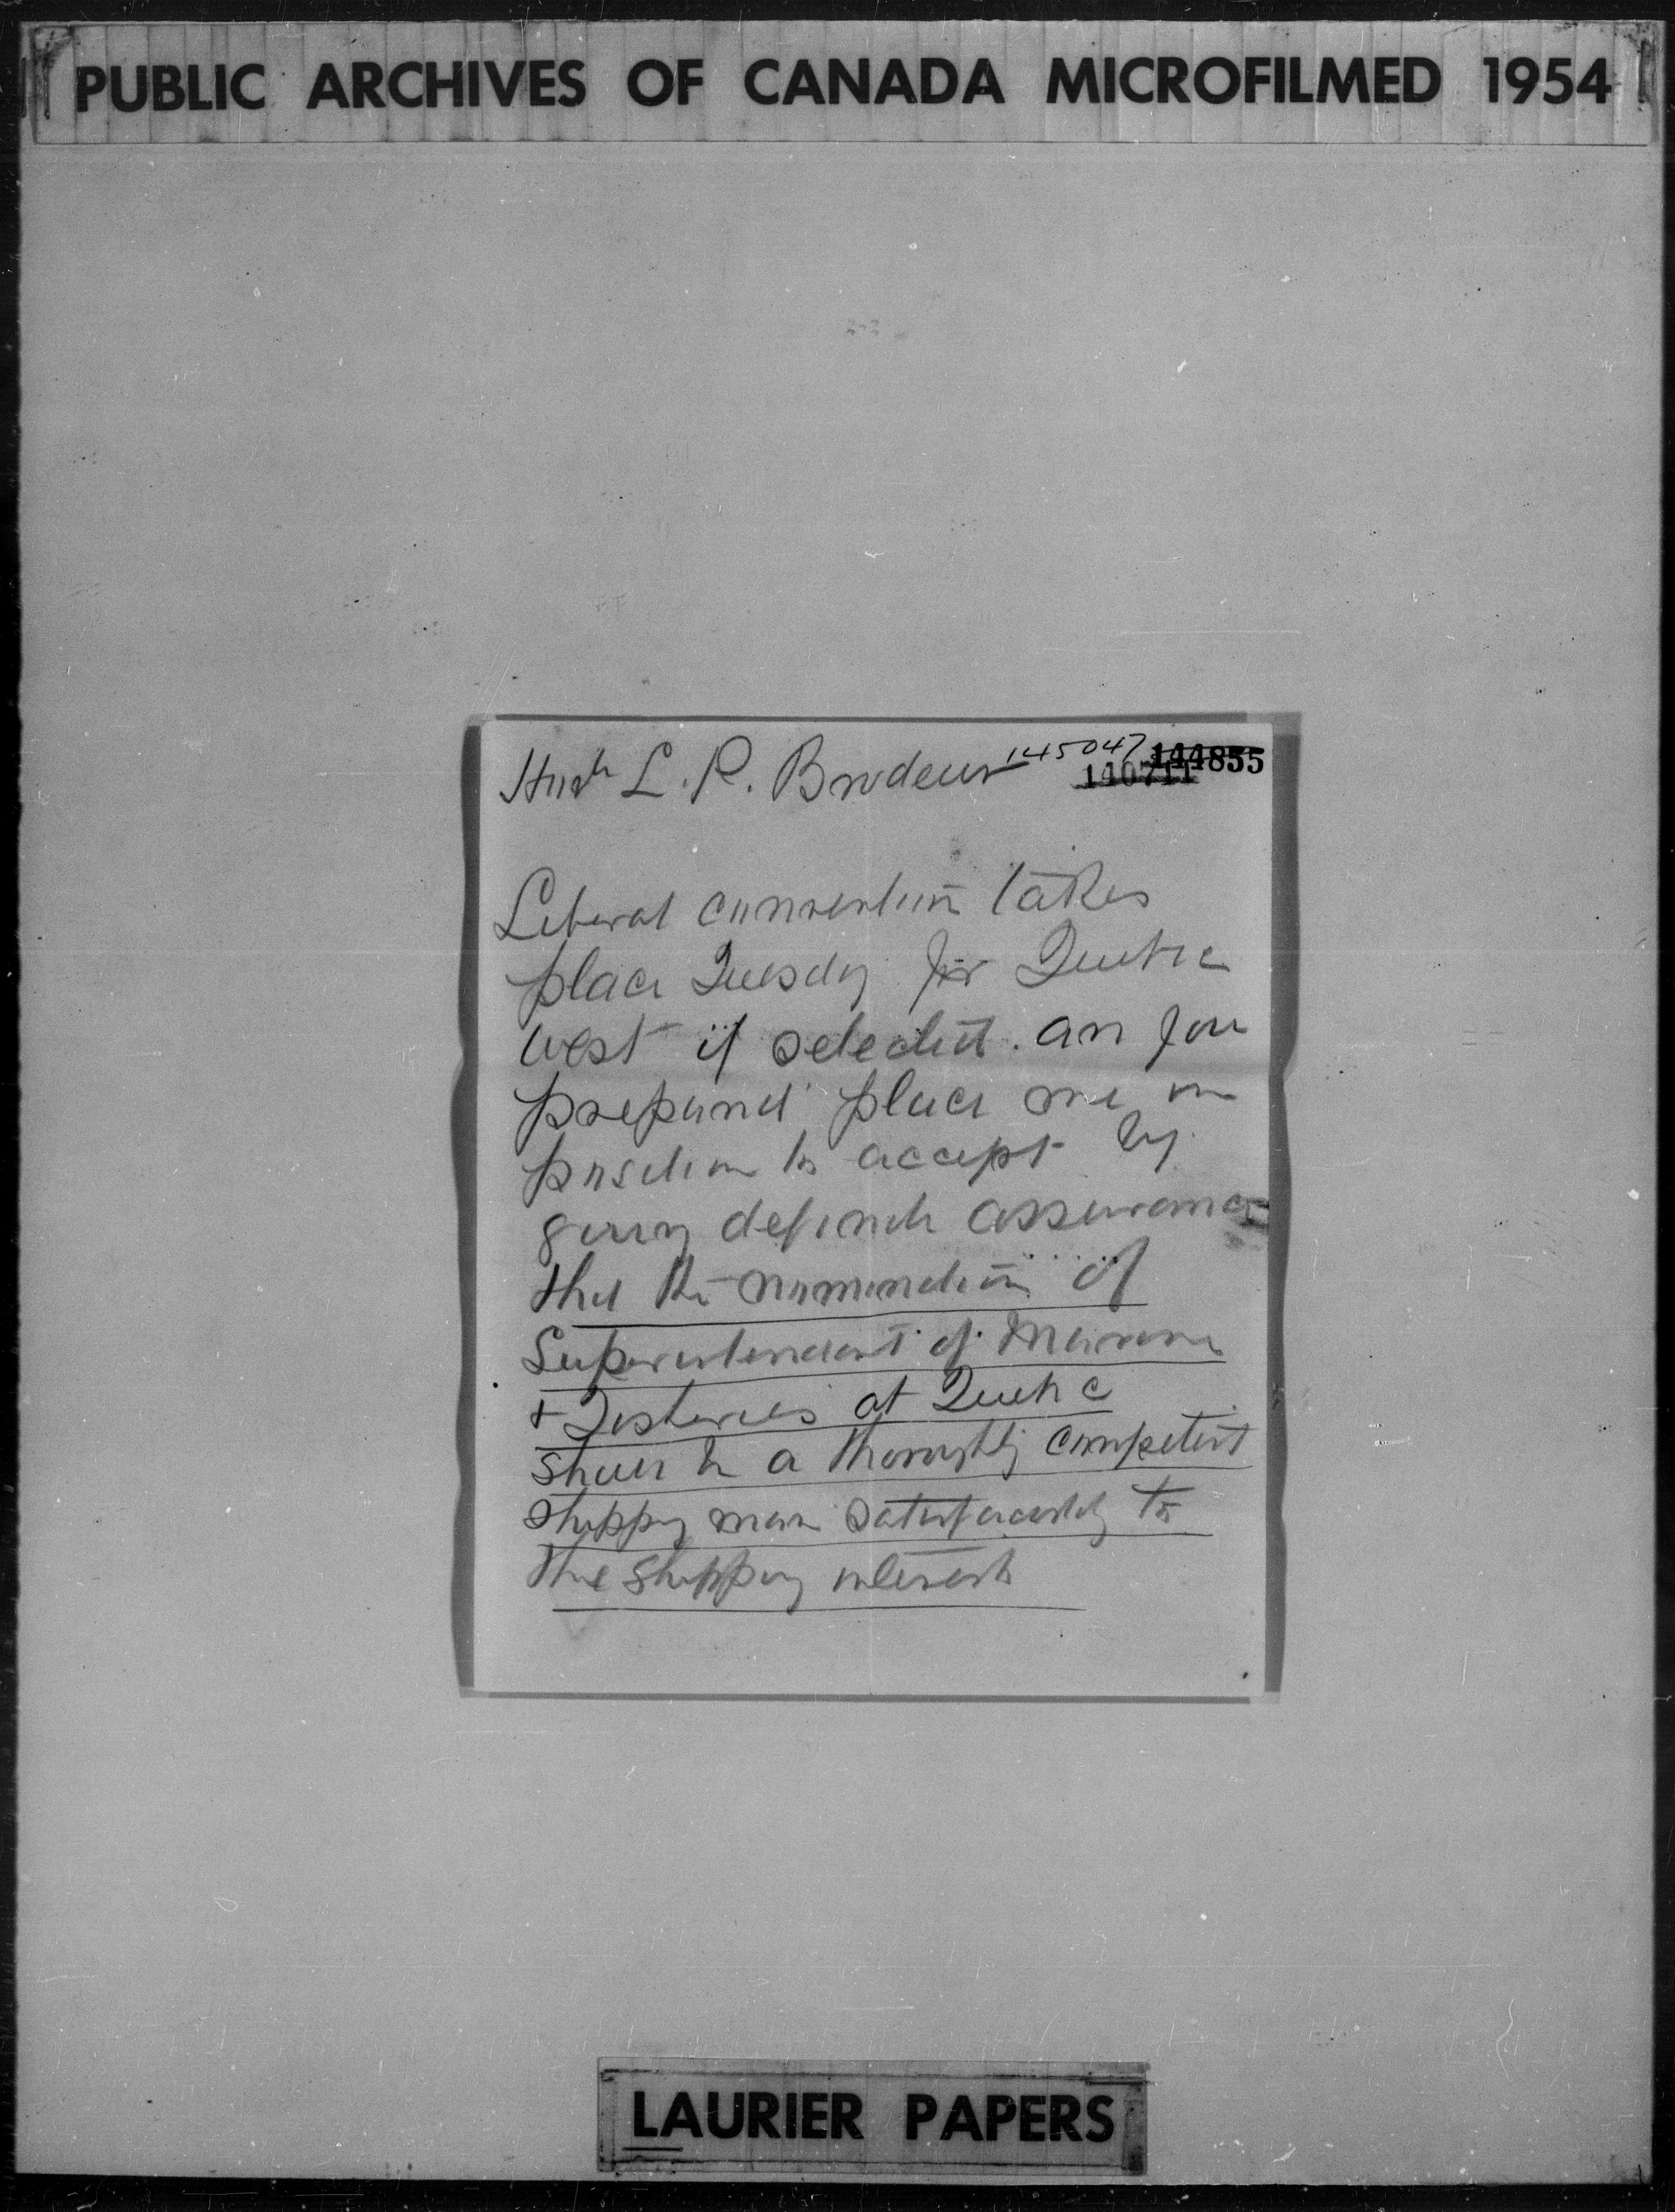 PUBLIC ARCHIVES OF CANADA MICROFILMED 1954
Honble L. P. Brodeur 145047 144855
140711
Liberal convention takes
place Tuesday for Quebec
west if selected are you
prepared place me in
position to accept by
giving definite assurance
that the nomination of
Superintendent of Marine
+ Fisheries at Quebec
shall be a thoroughly competent
shipping man satisfactorily to
the shipping interests
LAURIER PAPERS